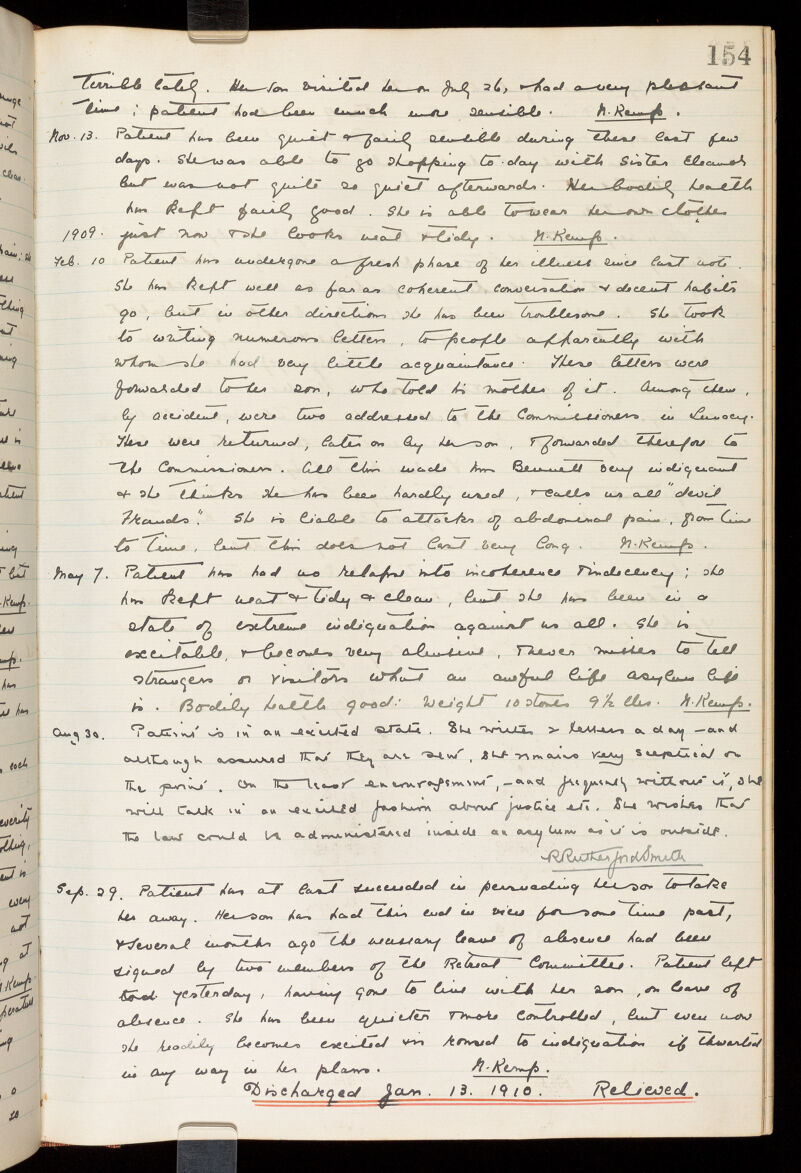 154
terrible lately. Her son visited her on July 26, & had a very pleasant
time; patient had been much more sensible. N. Kemp.
Nov. 13. Patient has been quiet & fairly sensible during these last few
days. She was able to go shopping to-day with Sister Eleanor
but was not quite so quiet afterwards. Her bodily health
has kept fairly good. She is able to wear her own clothes
1909. just now & she looks neat & tidy. N. Kemp.
Feb. 10 Patient has undergone a fresh phase of her illness since last note.
She has kept well as far as coherent conversation & decent habits
go, but in other directions she has been troublesome. She took
to writing numerous letters, to people apparently with
whom she had very little acquaintance. These letters were
forwarded to her son, who told his mother of it. Among them,
by accident, were two addressed to the Commissioners in Lunacy.
These were returned, later on by her son, & forwarded therefore to
the Commissioners. All this made Mrs Bennett very indignant
& she thinks she has been hardly used, & calls us all "devil
Frauds". She is liable to attacks of abdominal pain, from time
to time, but this does not last very long. N. Kemp.
May 7. Patient has had no relapse into incoherence & indecency; she
has kept neat & tidy & clean, but she has been in a
state of extreme indignation against us all. She is
excitable, & becomes very abusive, & never misses to tell
strangers or visitors what an awful life asylum life
is. Bodily health good: Weight 10 stones 9½ lbs. N. Kemp.
Aug 30. Patient is in an excited state. She writes 2 letters a day – and
although assured that they are sent, she remains very sceptical on
the point. On the least encouragement, – and frequently without it, she
will talk in an excited fashion about justice etc. She wishes that
the law could be administered inside an asylum as it is outside.
R Rutherford Smith
Sep. 29. Patient has at last succeeded in persuading her son to take
her away. Her son has had this end in view for some time past,
& several months ago the necessary leave of absence had been
signed by two members of the Retreat Committee. Patient left
yesterday, having gone to live with her son, on leave of
absence. She has been quieter & more controlled, but even now
she readily becomes excited & is roused to indignation if thwarted
in any way in her plans. N. Kemp.
Discharged Jan. 13. 1910. Relieved.